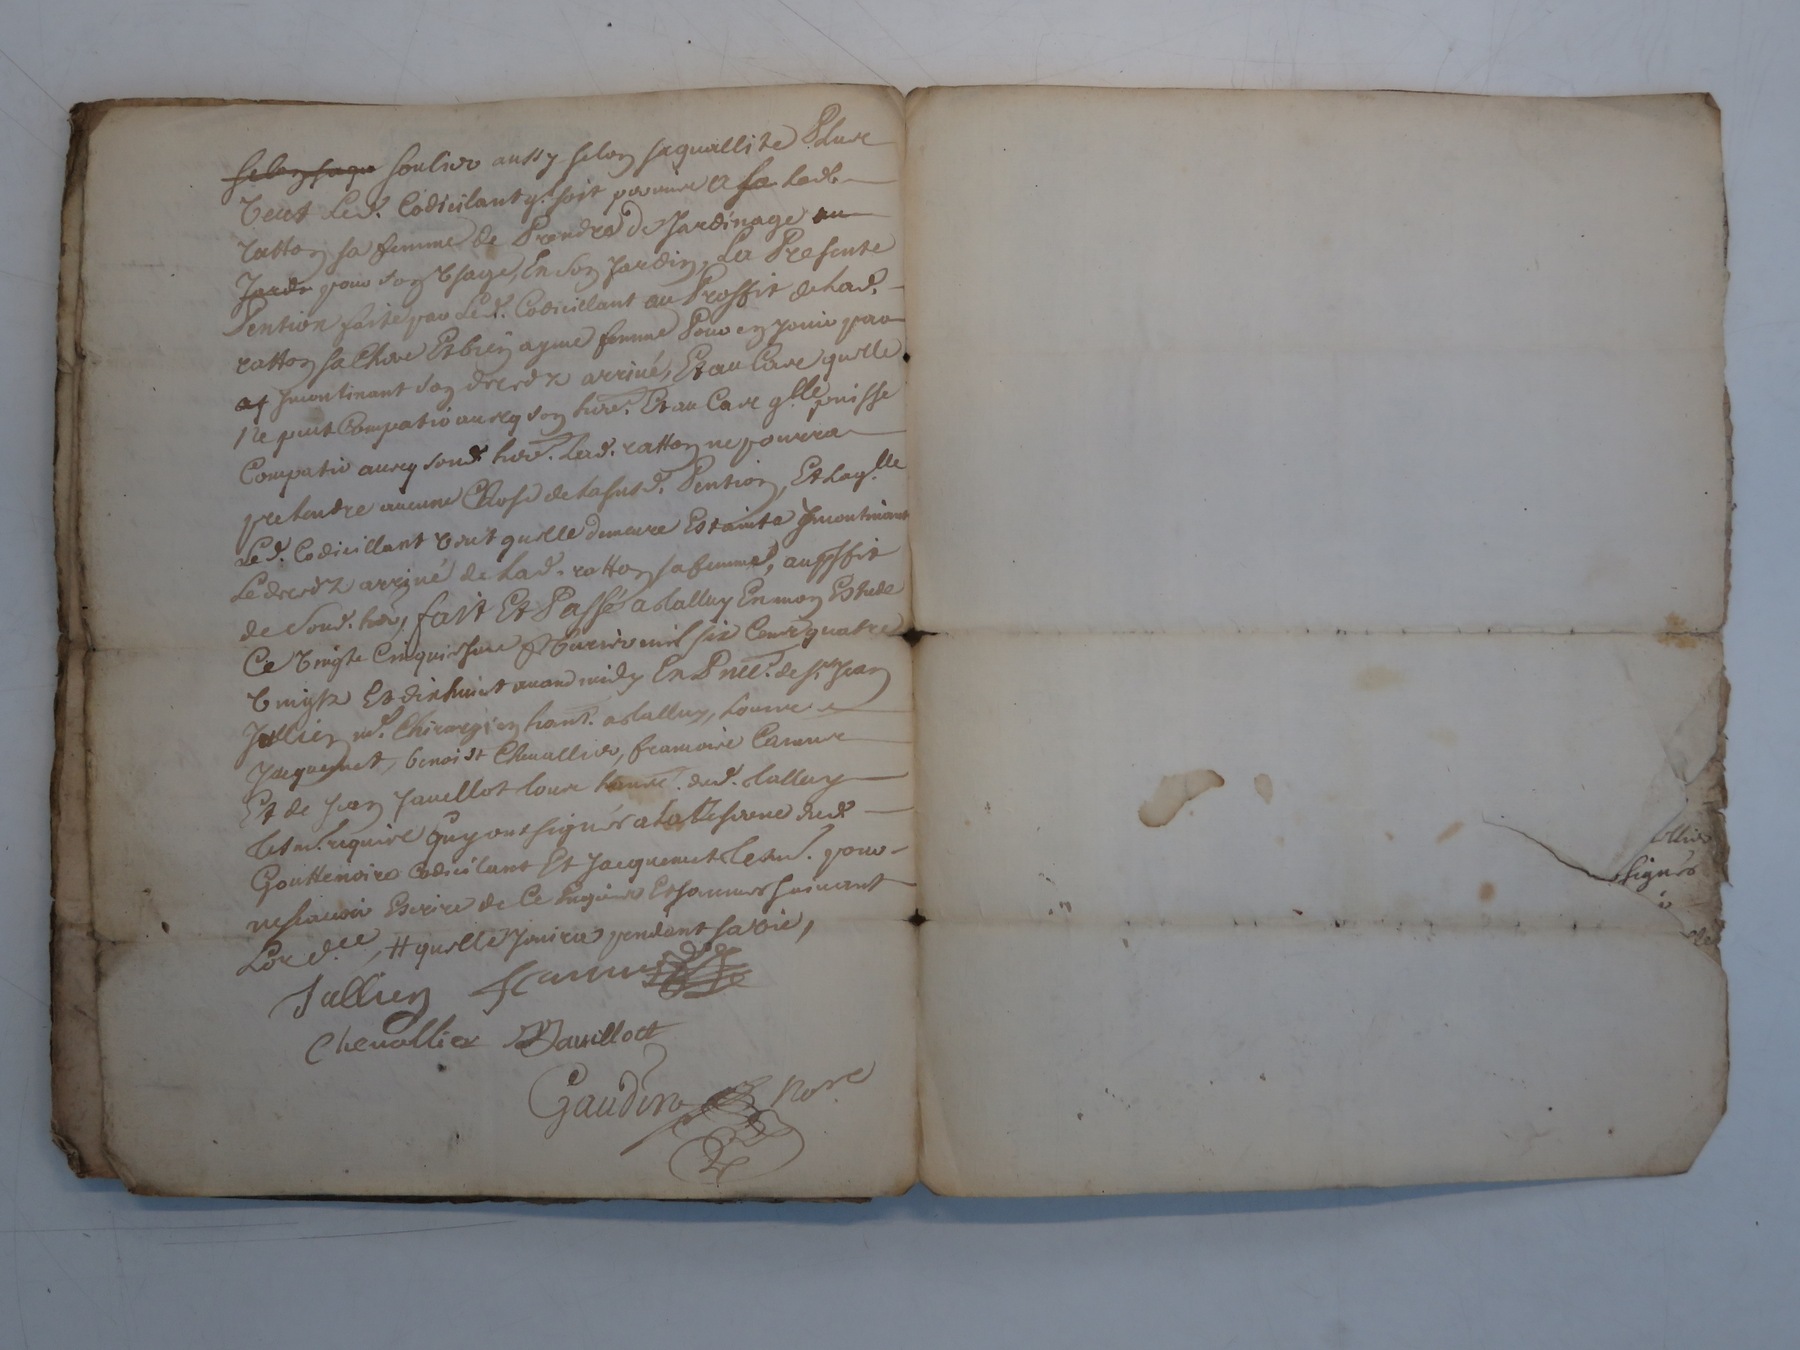 selon saqu soulier aussy selon saquallite Plus
Veut Led. Codicilant q. soit permis a sa Lad.
ratton sa femme de Prendre de Jardinage au
Jardr pour son Usage, En son Jardin, La Presente
Pention faite par Led. Codicillant au Proffit de Lad.
ratton sa Chere Et bien ayme femme Pour en jouir par
Jmontinant son deceds arrivé, Et au Cas quelle
Ne peut Compatir avecq son here. Et au Cas q.lle puisse
Compatir avecq sond. here. Lad. ratton ne pourra
pretendre aucune Chose de La susd. Pention, Et Laq.lle
Led. Codicillant veut quelle demeure Estainte Jmontinant
Le deceds arrivé de Lad. ratton sa femme, au pffit
de Sond. her, fait Et Passé a dalluy En mon Estude
Ce Vingte Cinquiesme fevrier mil six Cents quatre
Vingts Et dix huict avand midy En Pnce. de sr. Jean
Jullien me. Chirurgien hant. a dalluy, Louis
Jacquemet, benoist Chevallier, francois Camus
Et de Jean Javellot tous hants. dud. dalluy
tesm. requis Quy ont signés a La Reserve dud.
Gouttenoire codicilant Et Jacquemet tesm. pour
ne scavoir Escrire de Ce Enquis Et sommes suivant
Lor d.ce, # quelle Jouira pendant sa vie,
Jullien fcamus
Chevallier Javillott
Gaudin Nore
ollier
signés